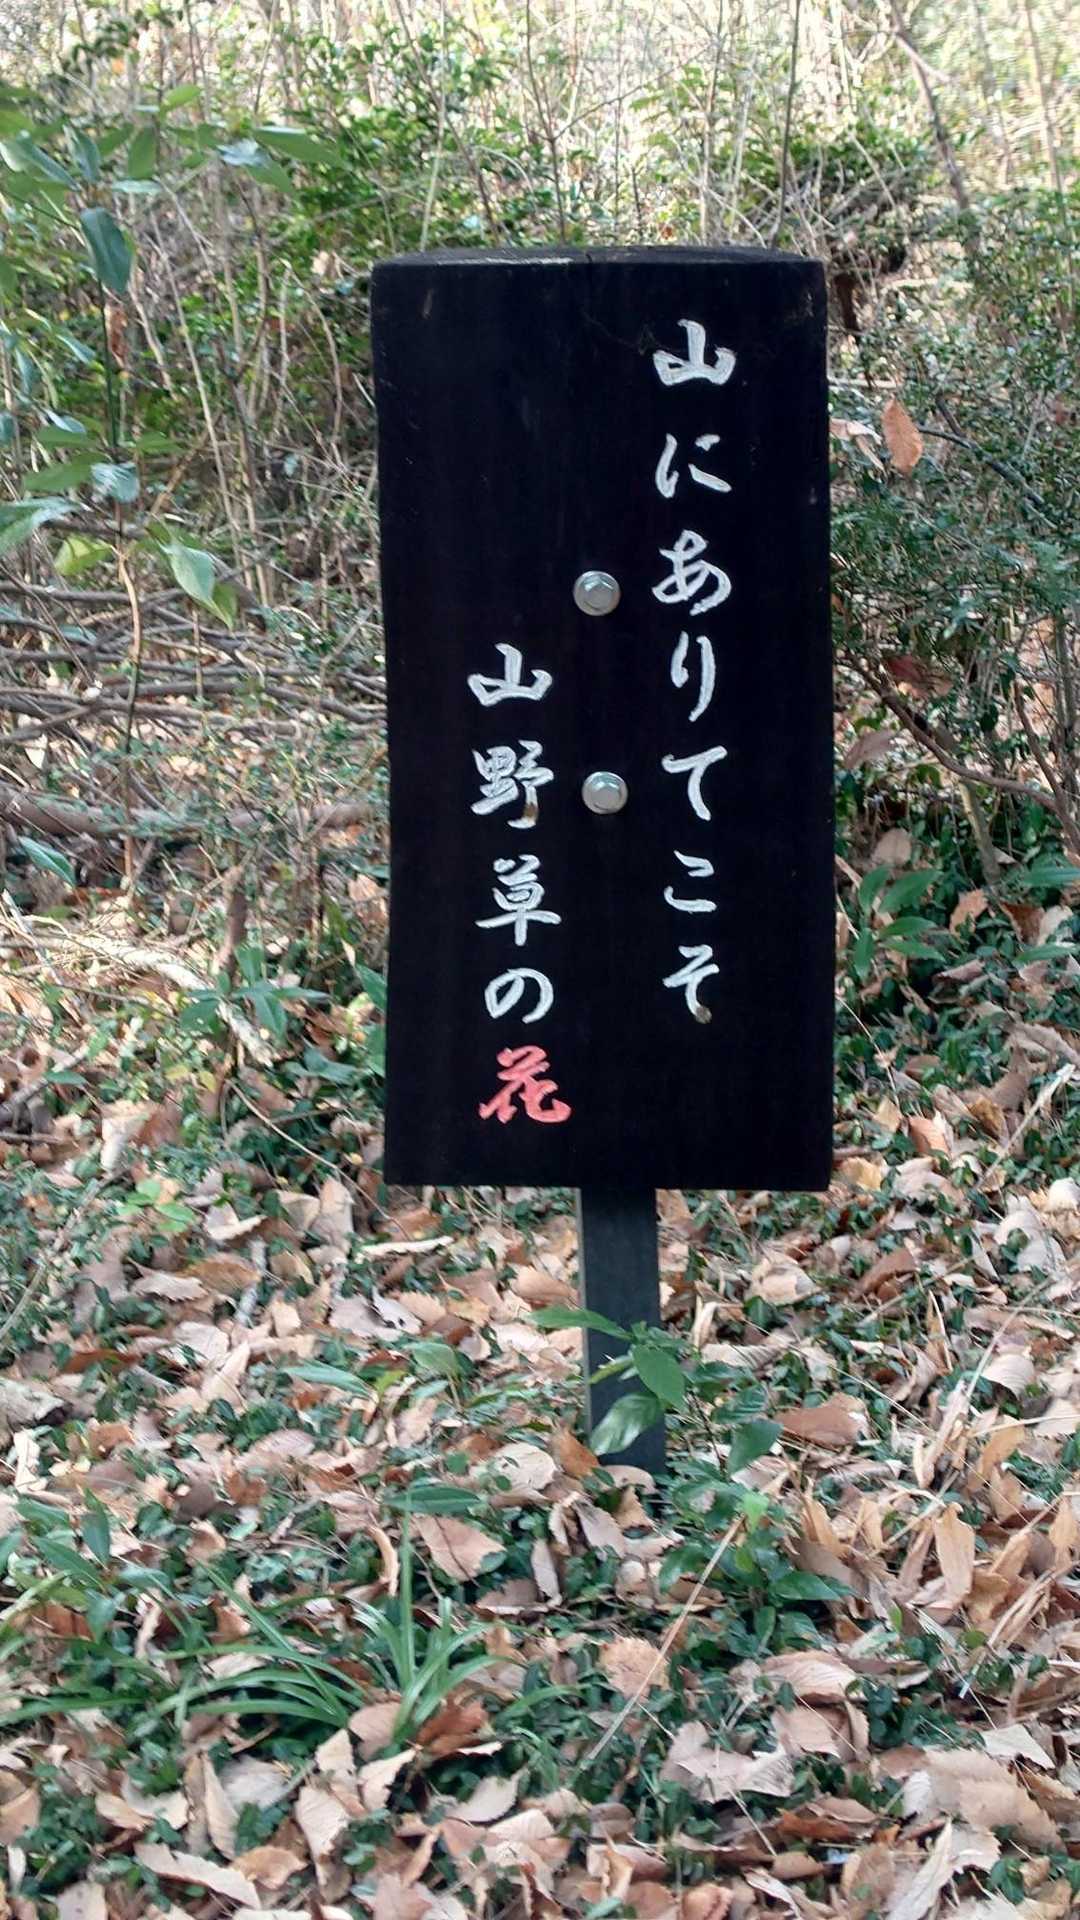 山にありてこそ
山野草の花